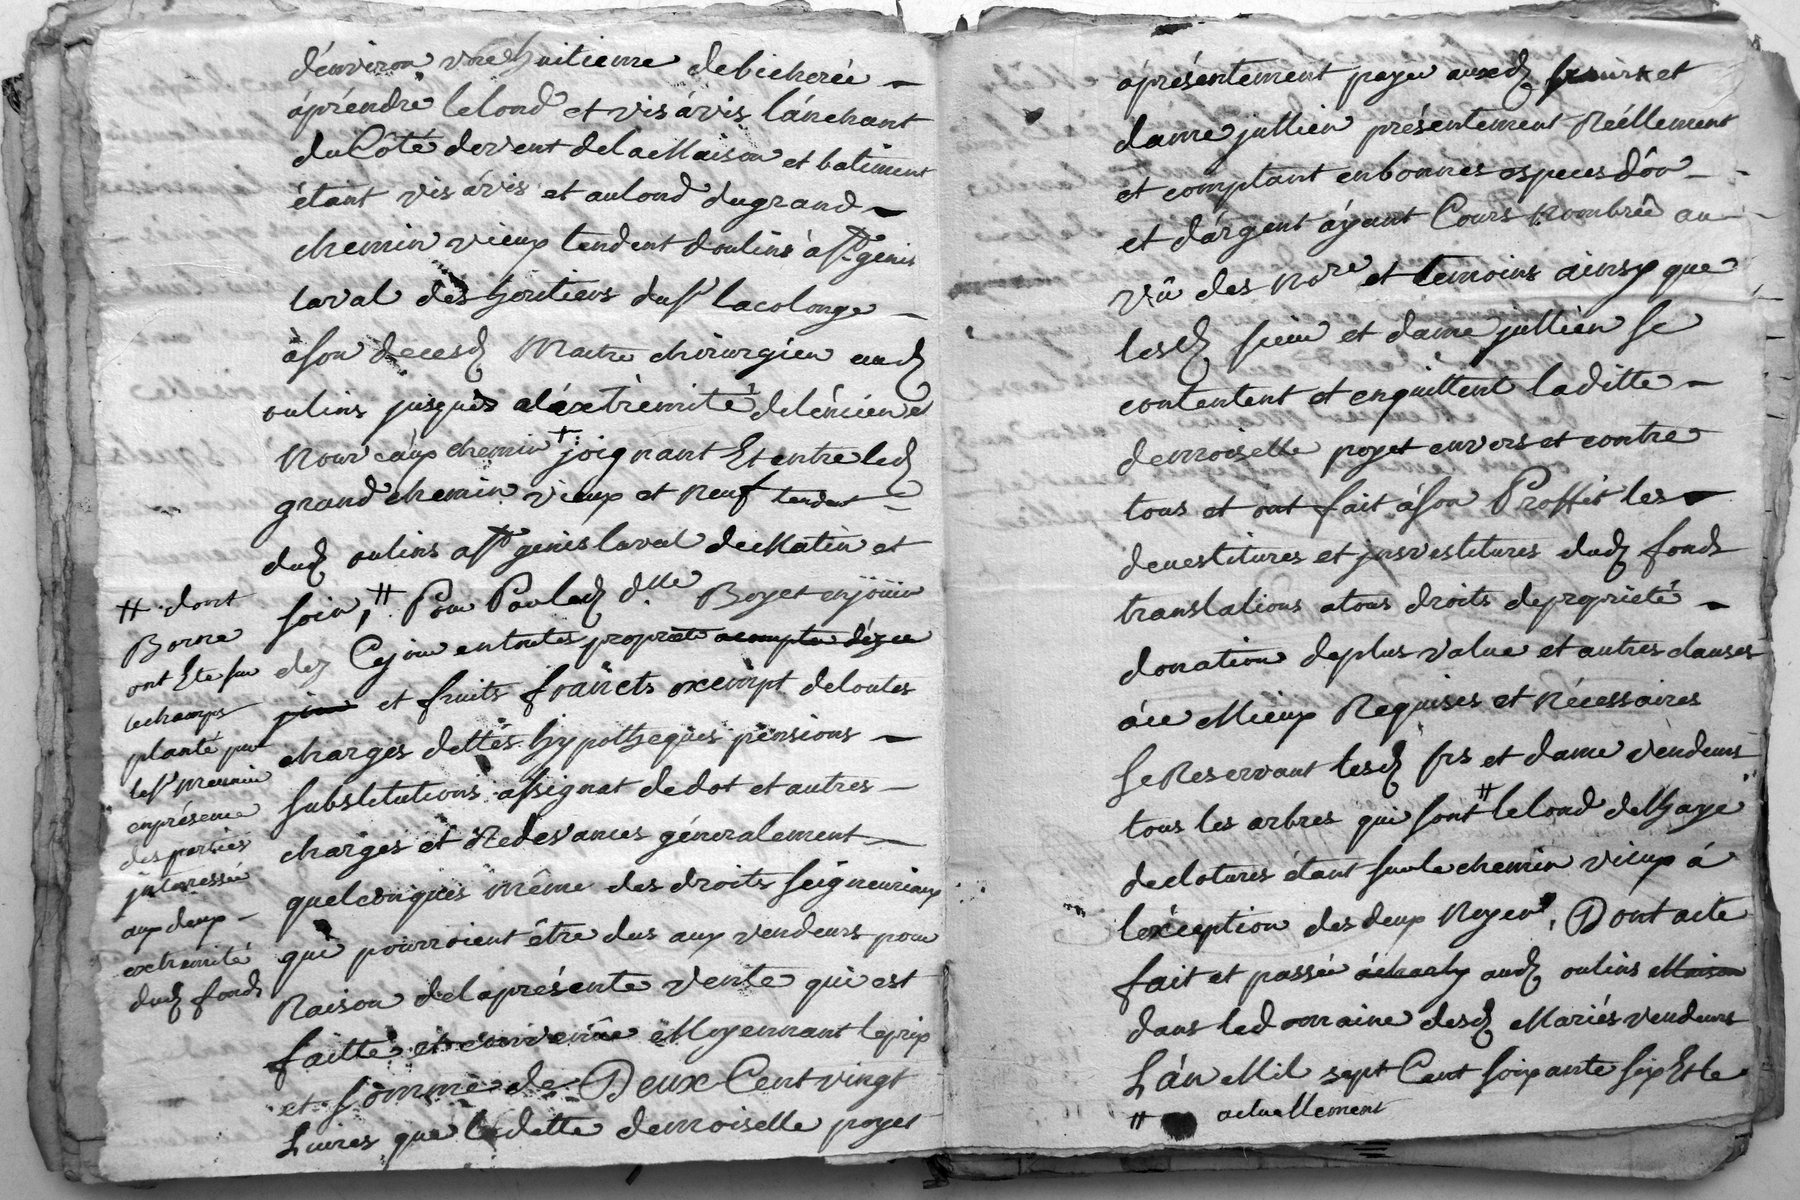 d'environ une huitieme de bicherée
áprendre le lond et vis ávis lánchant
du Côté devent de la Maison et batiment
étant vis ávis et au lond du grand
chemin vieux tendent d'oulins à st genis
laval des hértiers du sr lacolonge
à son decesd Maitre chirurgien aud
oulins jusques a l'éxtrèmité de l'encien et
Nouveaux chemin + joignant Et entre led
grand chemin vieux et neuf tendent
dud oulins a st genis laval de Matin et
soir, # Pour Par lad dlle Poyet enjouir
dez Cejour en toutes propriété
et fruits franets exempt de toutes
charges dettes hypotheques pensions
substitutions assignat de dot et autres
charges et Redevances géneralement
quelconques même des droits seigneuriaux
qui pourroient être dus aux vendeurs pour
Raison de la présente vente qui est
faitte et convenûe Moyennant le prix
et somme de Deux Cent vingt
Livres que ladette demoiselle poyet
# dont
Borne
ont Ete sur
le champs
planté par
le sr
en présence
des parties
interessée
aux deux
extremité
dud fonds
aprésentement payer auxd sieurs et
dame jullien présentement Réellement
et comptant en bonnes especes d'ôr
et d'árgent áyant Cours Nombrée au
vû des Nore et temoins ainsy que
lesd sieur et dame jullien se
contentent et enquittent laditte
demoiselle poyet envers et contre
tous et ont fait á son Proffit les
devestitures et investitures dud fonds
translations atous droits de propriété
donation de plus value et autres clauses
áce Mieux Requises et Nécessaires
se Reservant lesd srs et dame vendeurs
tous les arbres qui sont # le lond de l'haye
de cloture étant sur le chemin vieux á
l'exception des deux Noyer. Dont acte
fait et passée á charly aud oulins Maison
dans le domaine desd Mariés vendeurs
L'án Mil sept Cent soixante six Et le
# actuellement